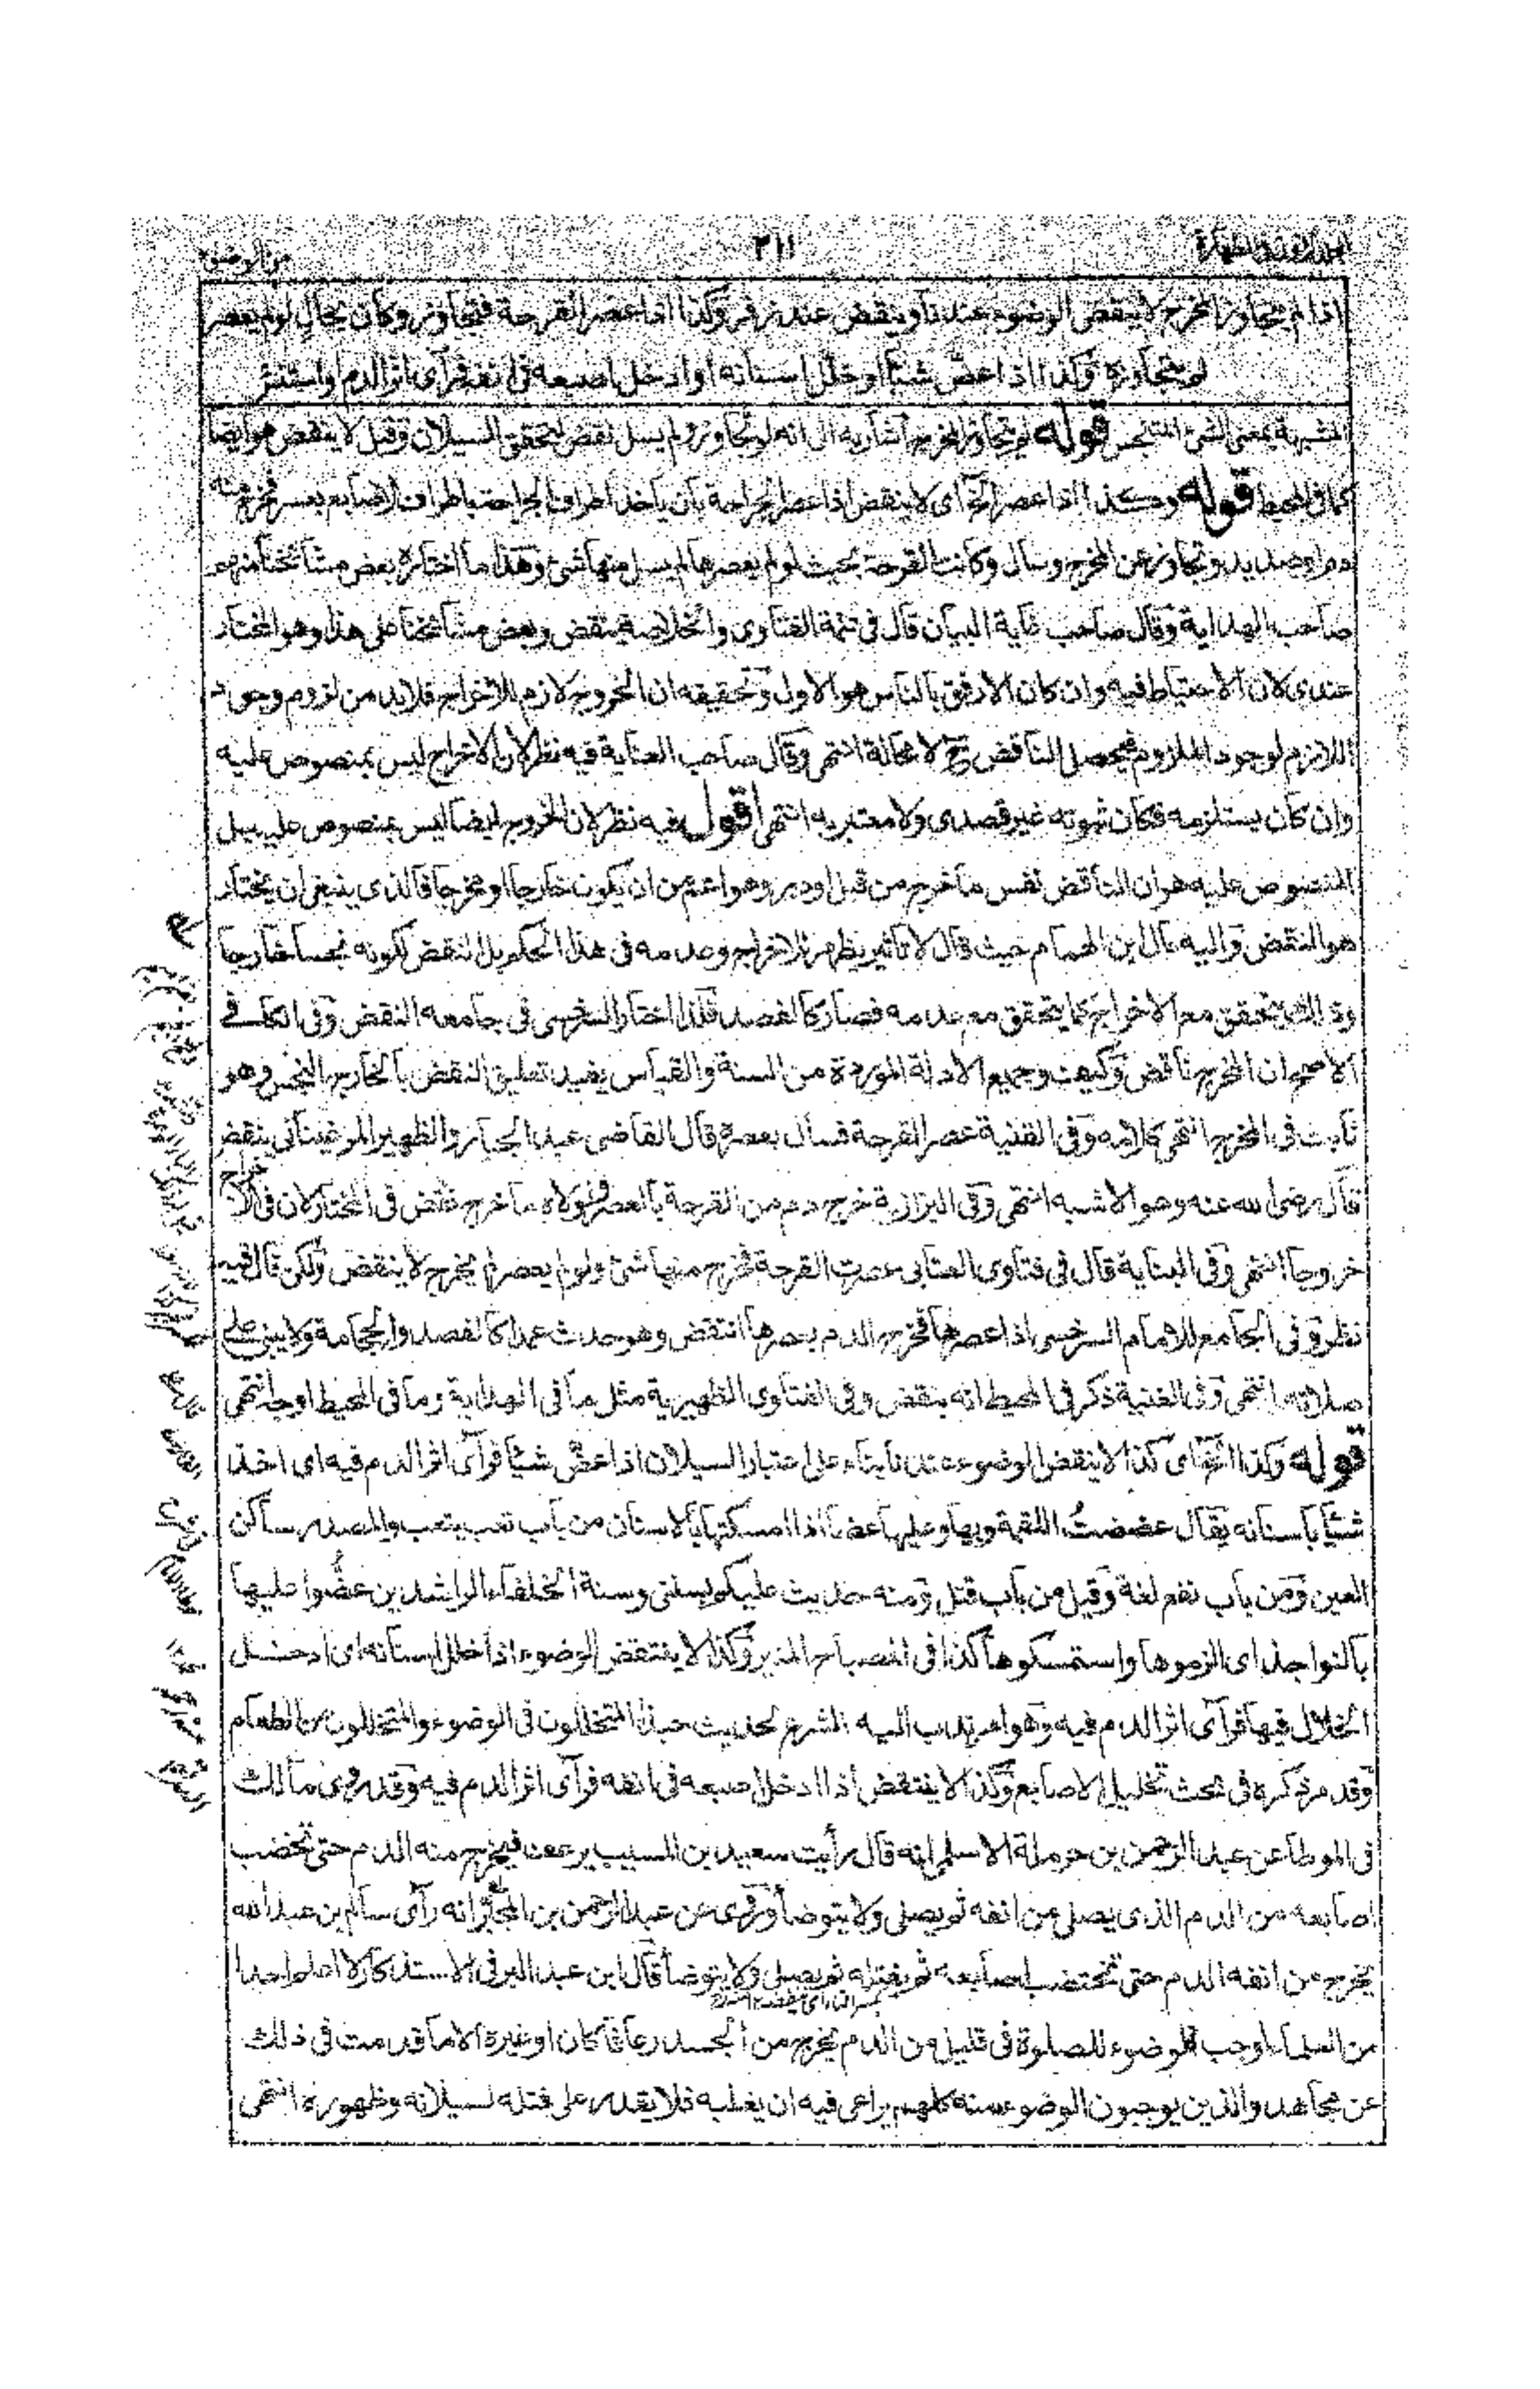 ٢١١
اذا لم يتجاوز المخرج لا ينقض الوضوء عندنا وينقض عند زفر وكذا اذا عصر القرحة فتجاوز وكان بحال لو لم يعصر
لم يتجاوزه وكذا اذا عض شيئا او خلل اسنانه او ادخل اصبعه في انفه فرآى اثر الدم او استنثر
بمعنى الشئ المتنجس قوله لم يتجاوز المخرج اشار به الى انه لو تجاوز ولم يسل نقض لتحقق السيلان وقيل لا ينقض هو ايضا
كما في المحيط قوله وكذا اذا عصر الخ اى لا ينقض اذا عصر الجراحة بان ياخذ اطراف الجراحة باطراف الاصابع يعسر فخرج منه
دم او صديد وتجاوز عن المخرج وسال وكانت القرحة بحيث لو لم يعصرها لم يسل منها شئ وهذا ما اختاره بعض مشائخنا منهم
صاحب الهداية وقال صاحب غاية البيان قال في تتمة الفتاوى والخلاصة ينقض وبعض مشائخنا على هذا وهو المختار
عندى لان الاحتياط فيه وان كان الارفق بالناس هو الاول وتحقيقه ان الخروج لازم للاخراج فلابد من لزوم وجود
اللازم لوجود الملزوم فيحصل الناقض ح لا محالة انتهى وقال صاحب العناية فيه نظر لان الاخراج ليس بمنصوص عليه
وان كان يستلزمه فكان ثبوته غير قصدى ولا معتبر به انتهى اقول فيه نظر لان الخروج ايضا ليس بمنصوص عليه بل
المنصوص عليه هو ان الناقض نفس ما خرج من قبل او دبر وهو اعم من ان يكون خارجا او مخرجا فالذى ينبغى ان يختار
هو النقض واليه مال ابن الهمام حيث قال لا تأثير يظهر للاخراج وعدمه في هذا الحكم بل النقض لكونه نجسا خارجا
وذلك يتحقق مع الاخراج كما يتحقق مع عدمه فصار كالفصد فلذا اختار السرخسي في جامعه النقض وفى الكافي
الاصح ان المخرج ناقض وكيف وجميع الادلة الموردة من السنة والقياس يفيد تعليق النقض بالخارج النجس وهو
ثابت في المخرج انتهى كلامه وفى القنية عصر القرحة فسال بعصره قال القاضى عبد الجبار والظهير المرغيناني ينقض
قال رضى الله عنه وهو الاشبه انتهى وفى البزازية خرج دم من القرحة بالعصر ولولاه ما خرج نقض في المختار لان في الاخراج
خروجا انتهى وفى البناية قال في فتاوى العتابى عصرت القرحة فخرج منها شئ ولو لم يعصر لم يخرج لا ينقض ولكن قال فيه
نظر وفى الجامع للامام السرخسى اذا عصرها فخرج الدم بعصرها انتقض وهو حدث عمدا كالفصد والحجامة ولا يبنى على
صلاته انتهى وفى الغنية ذكر في المحيط انه ينقض وفى الفتاوى الظهيرية مثل ما في الهداية وما في المحيط اوجه انتهى
قوله وكذا الخ اى كذا لا ينقض الوضوء عندنا بناء على اعتبار السيلان اذا عض شيئا فرآى اثر الدم فيه اى اخذ
شيئا باسنانه يقال عضضت اللقمة وبها وعليها عضا اذا امسكتها بالاسنان من باب تعب يتعب والمصدر ساكن
العين ومن باب نفع لغة وقيل من باب قتل ومنه حديث عليكم بسنتى وسنة الخلفاء الراشدين عضوا عليها
بالنواجذ اى الزموها واستمسكوها كذا في المصباح المنير وكذا لا ينتقض الوضوء اذا خلل اسنانه اى ادخل
الخلال فيها فرآى اثر الدم فيه وهو امر ندب اليه الشرع لحديث حبذا المتخللون في الوضوء والمتخللون من الطعام
وقد مر ذكره في بحث تخليل الاصابع وكذا لا ينتقض اذا ادخل اصبعه في انفه فرآى اثر الدم فيه وقد روى مالك
في الموطا عن عبد الرحمن بن حرملة الاسلمى انه قال رأيت سعيد بن المسيب يرعف فيخرج منه الدم حتى تخضب
اصابعه من الدم الذى يصل من انفه ثم يصلى ولا يتوضأ وروى عن عبد الرحمن بن المجبر انه رآى سالم بن عبد الله
يخرج من انفه الدم حتى تختضب اصابعه ثم يفتله ثم يصلى ولا يتوضأ قال ابن عبد البر في الاستذكار لا اعلم احدا
من العلماء اوجب الوضوء للصلوة في قليل من الدم يخرج من الجسد رعافا كان او غيره الا ما قدمت في ذلك
عن مجاهد والذين يوجبون الوضوء منه كلهم يراعى فيه ان يغلبه فلا يقدر على فتله لسيلانه وظهوره انتهى